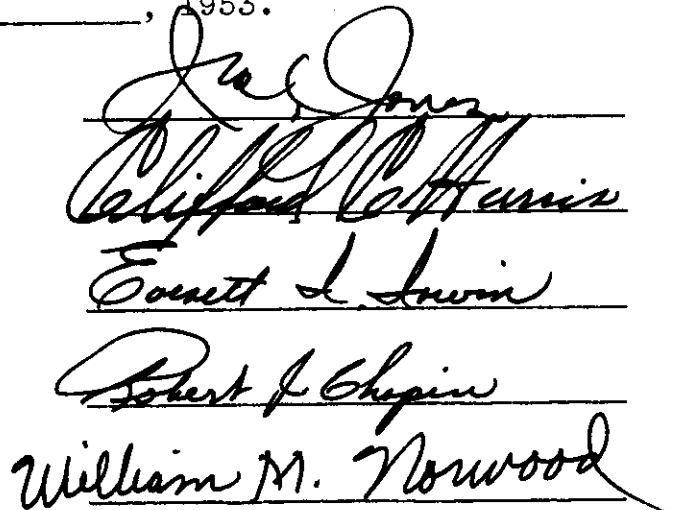 , 1953.
Ira C. Jones
Clifford C Harris
Everett I. Irwin
Robert J Chapin
William M. Norwood